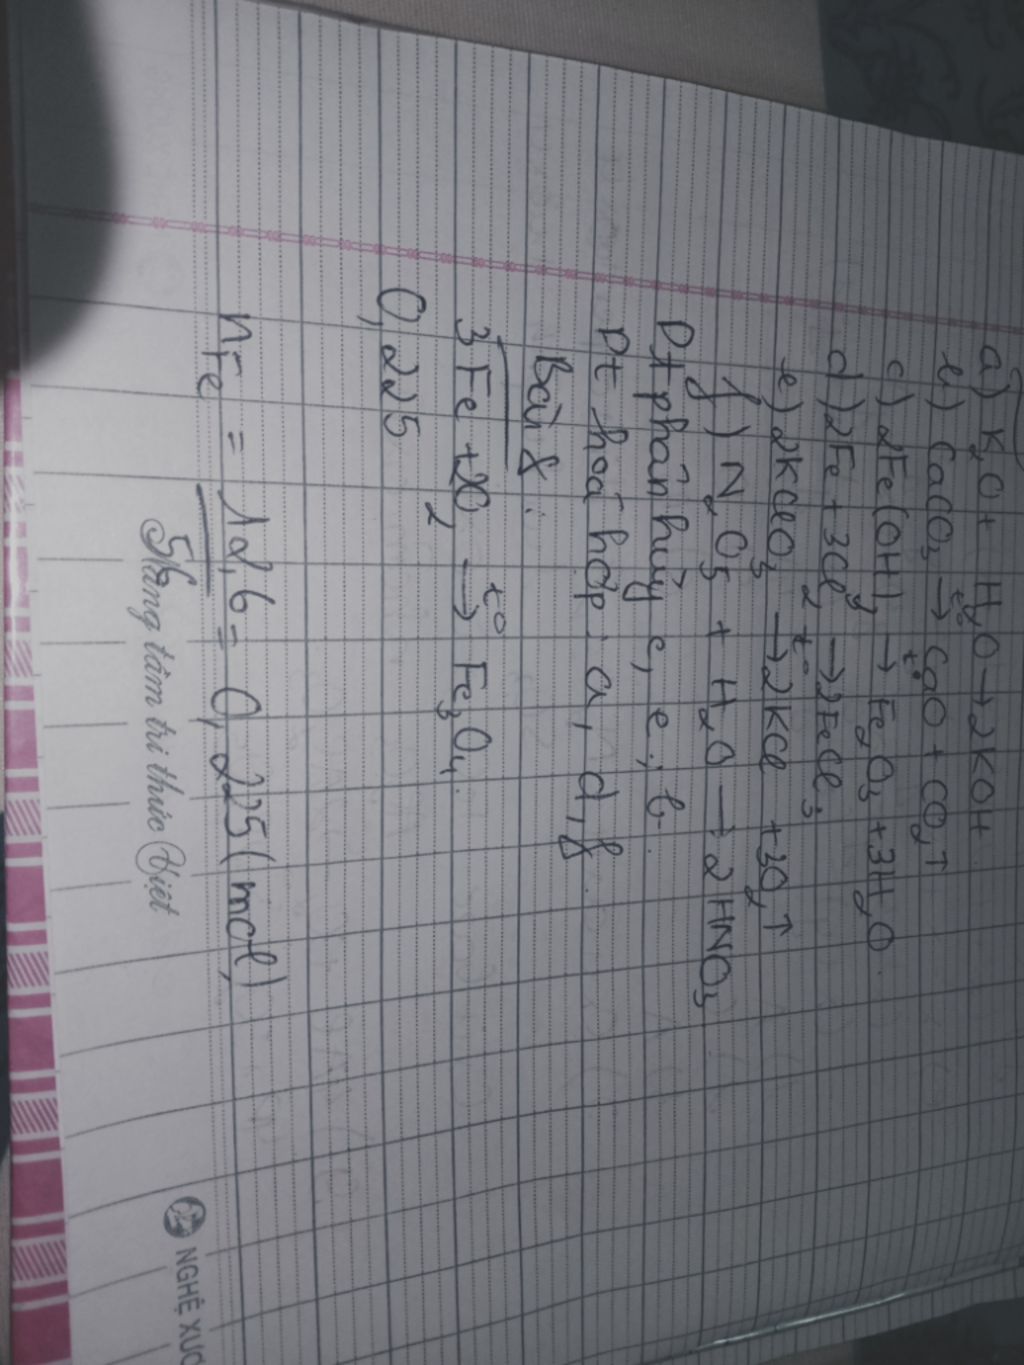 a) K₂O + H₂O → 2KOH
b) CaCO₃ →t° CaO + CO₂↑
c) 2Fe(OH)₃ →t° Fe₂O₃ + 3H₂O.
d) 2Fe + 3Cl₂ →t° 2FeCl₃
e) 2KClO₃ → 2KCl + 3O₂↑
f) N₂O₅ + H₂O → 2HNO₃
Pt phân hủy c, e, b.
Pt hoá hợp: a, d, f.
Bài 8:
3Fe + 2O₂ →t° Fe₃O₄.
0,225
nFe = 12,6 = 0,225 (mol)
5
Nâng tầm tri thức Việt
NGHỆ XUC